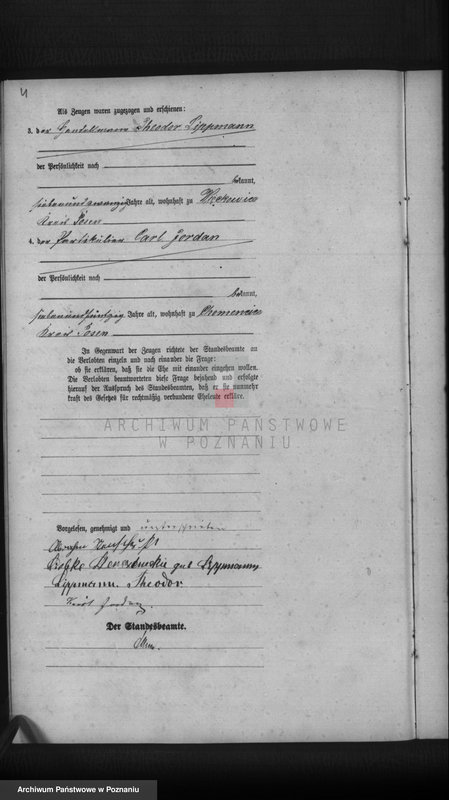 4
Als Zeugen waren zugezogen und erschienen:
3. der Theodor Lippmann
der Persönlichkeit nach
bekannt,
siebenundzwanzig Jahre alt, wohnhaft zu
Kreis Posen
4. der Partikulier Carl Jordan
der Persönlichkeit nach
bekannt,
siebenundfünfzig Jahre alt, wohnhaft zu
Kreis Posen
In Gegenwart der Zeugen richtete der Standesbeamte an
die Verlobten einzeln und nach einander die Frage:
ob sie erklären, daß sie die Ehe mit einander eingehen wollen.
Die Verlobten beantworteten diese Frage bejahend und erfolgte
hierauf der Ausspruch des Standesbeamten, daß er sie nunmehr
kraft des Gesetzes für rechtmäßig verbundene Eheleute erkläre.
ARCHIWUM PAŃSTWOWE
W POZNANIU
Vorgelesen, genehmigt und unterschrieben
geb Lippmann
Lippmann Theodor
Jordan.
Der Standesbeamte.
Archiwum Państwowe w Poznaniu